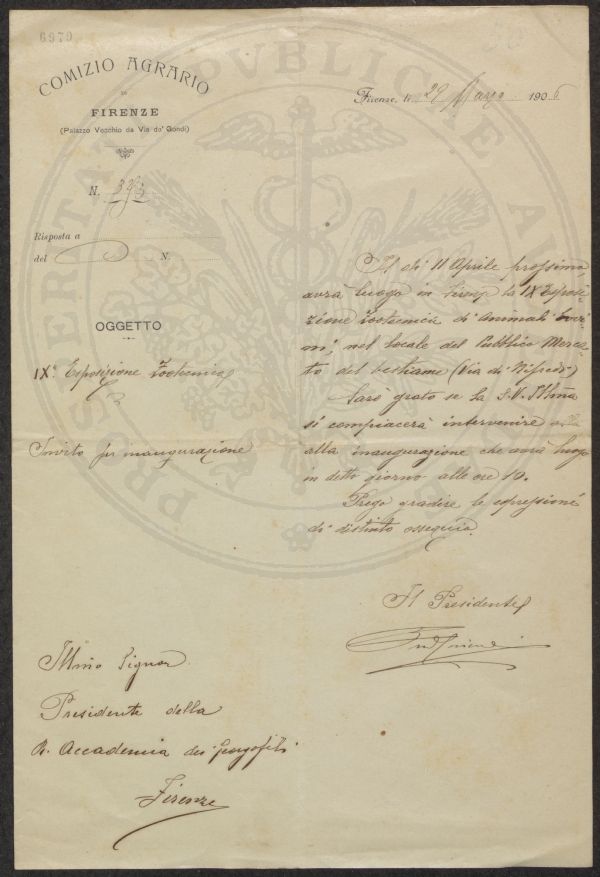 6979
COMIZIO AGRARIO
DI
FIRENZE
(Palazzo Vecchio da Via de' Gondi)
N. 393
Risposta a
del N.
OGGETTO
IXª Esposizione Zootecnica
Invito per inaugurazione
Firenze, li 29 Marzo 1906
Il dì 11 Aprile prossimo
avrà luogo in Firenze la IXª Esposi-
zione Zootecnica di Animali bovi-
ni, nel locale del Pubblico Merca-
to del bestiame (Via di Rifredi)
Sarò grato se la S.V. Illma
si compiacerà intervenire
alla inaugurazione che avrà luogo
in detto giorno alle ore 10.
Prego gradire le espressioni
di distinto ossequio.
Il Presidente
Illmo Signor
Presidente della
R. Accademia dei Georgofili
Firenze
PROSPERITATI PUBLICAE AU